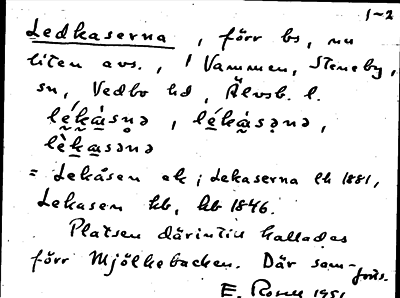 1-2
Ledkaserna, förr bs, nu
liten avs., i Vammen, Steneby,
sn, Vedbo hd, Älvsb. l.
= Lekåsen ek; Lekaserna lk 1881,
Lekasen kb, kb 1846.
Platsen därintill kallades
förr Mjölkebacken. Där sam-
forts.
E. 1951